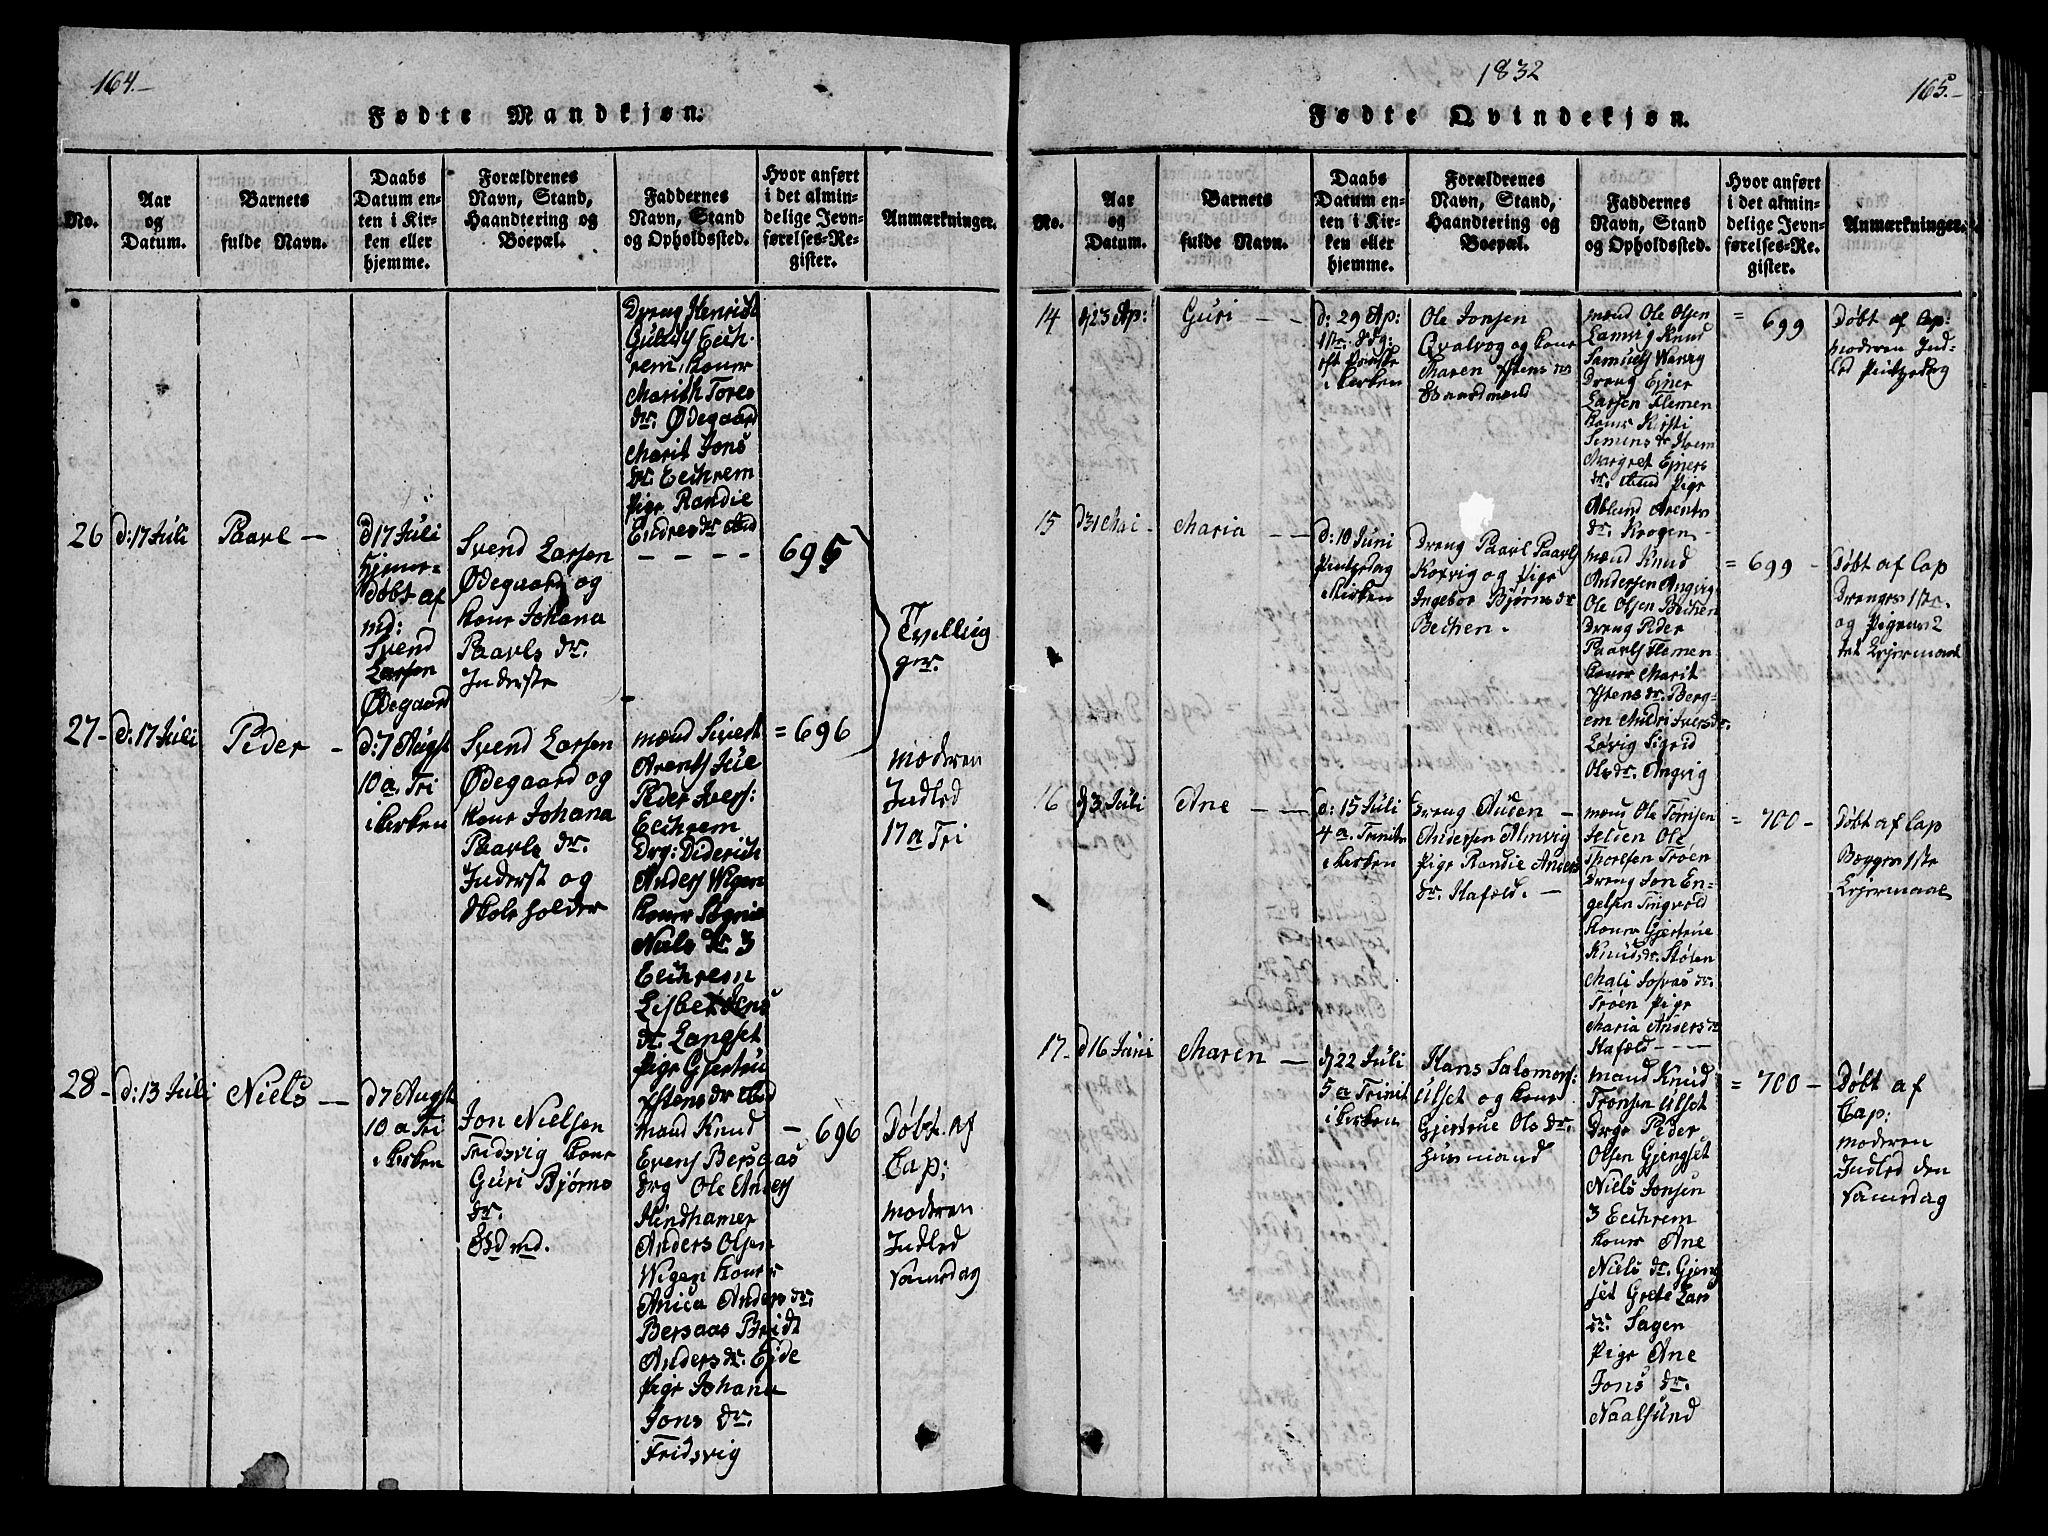 164.
Fødte Mandkjøn.
No.
Aar
og
Datum.
Barnets
fulde Navn.
Daabs
Datum en-
ten i Kir-
ken eller
hjemme.
Forældrenes
Navn, Stand,
Haandtering og
Boepæl.
Faddernes
Navn, Stand
og Opholdssted.
Hvor anført
i det almin-
delige Jevn-
førelses-Re-
gister.
Anmærkninger.
Dreng Henrich
Eich-
rem, koner
Marith Tores
dr. Ødegaard
Marit Jons
dr. Eichrem
Pige Randie
Endres dr
26
d: 17 Juli
Paavl —
d 17 Juli
hjeme-
døbt af
md:
Svend
Larsen
Ødegaard
Svend Larsen
Ødegaard og
kone Johana
Paavls dr.
Inderste
— — — —
695
Tvelling
ger.
27 -
d: 17 Juli
Peder —
d: 7 Augst
10 a. Tri
i kirken
Svend Larsen
Ødegaard og
kone Johana
Paavls dr.
Inderst og
Skoleholder
mænd Sivert
Arents
Peder Ivers:
Eichrem
Drg: Diderich
Anders Wigen
koner
Niels dr 3
Eichrem
Lisbet Jens
dr. Langset
Pige Gjertru
Ystens dr
= 696
moderen
Indled
17 a Tri
28 -
d: 13 Juli
Niels —
d 7 Augst
10 a Tri
i kirken
Jon Nielsen
Fridsvig kone
Guri Bjørns
dr.
Gdmd.
mand Knud
Evens Bersaas
drg Ole Anders
Hindhamer
Anders Olsen
Wigen koner
Anica Anders dr.
Bersaas
Anders dr. Ejde
Pige Johana
Jons dr.
Fridsvig
— 696
Døbt af
Cap:
moderen
Indled
samedag
1832
165.
Fødte Qvindekjøn.
No.
Aar
og
Datum.
Barnets
fulde Navn.
Daabs
Datum en-
ten i Kir-
ken eller
hjemme.
Forældrenes
Navn, Stand,
Haandtering og
Boepæl.
Faddernes
Navn, Stand
og Opholdssted.
Hvor anført
i det almin-
delige Jevn-
førelses-Re-
gister.
Anmærkninger.
14
d 23 Ap:
Guri — —
d: 29 Ap:
1ste
i kirken
Ole Jonsen
Qvalvog og kone
Maren Ystens dr
Gaardmand
mænd Ole Olsen
Knud
Samuels
Dreng Ejner
Larsen Flemen
koner Kirsti
Simens dr Hoem
Margret Ejners
dr. Pige
Arents
dr. Krogen -
= 699
Døbt af Cap:
moderen Ind-
led Pintzedag
15
d 31 Mai -
Maria — —
d: 10 Juni
Pintzedag
i kirken
Dreng Paavl Paavls
Korsvig og Pige
Ingebor Bjørns dr
Bechen.
mænd Knud
Andersen Angvig
Ole Olsen Bechen
Dreng Peder
Paavls Flemen
koner Marit
Ystens dr. Berg-
em Ivers dr.
Løvig Sigrid
Ols dr. Angvig
= 699 -
Døbt af Cap
Drengens 1ste
og Pigens 2
det Lejermaal
16
d 3 Juli
Ane — —
d: 15 Juli
4 a. Trinit
i kirken
Dreng Auden —
Andersen Almvig
Pige Randie Anders
dr. Hafæld. —
mænd Ole
Ole
Thoresen Trøen
Dreng Jon En-
gelsen Tingvold
koner Gjertrue
Knuds dr. Støten
Mali
Trøen Pige
Maria Anders dr
Hafæld — — —
= 700 -
Døbt af Cap
Begges 1ste
Lejermaal
17 -
d 16 Juni
Maren —
d 22 Juli
5 a Trinit
i kirken
Hans Salomons:
Ulset og kone
Gjertrue Ols dr.
Husmand
mand Knud
Tronsen Ulset
Drge Peder
Olsen Gjengset
Niels Jonsen
3 Eichrem
koner Ane
Niels dr. Gjeng
set Grete Lars
dr. Sagen
Pige Ane
Jons dr.
Naalsund
= 700 -
Døbt af
Cap:
moderen
Indled den
samedag